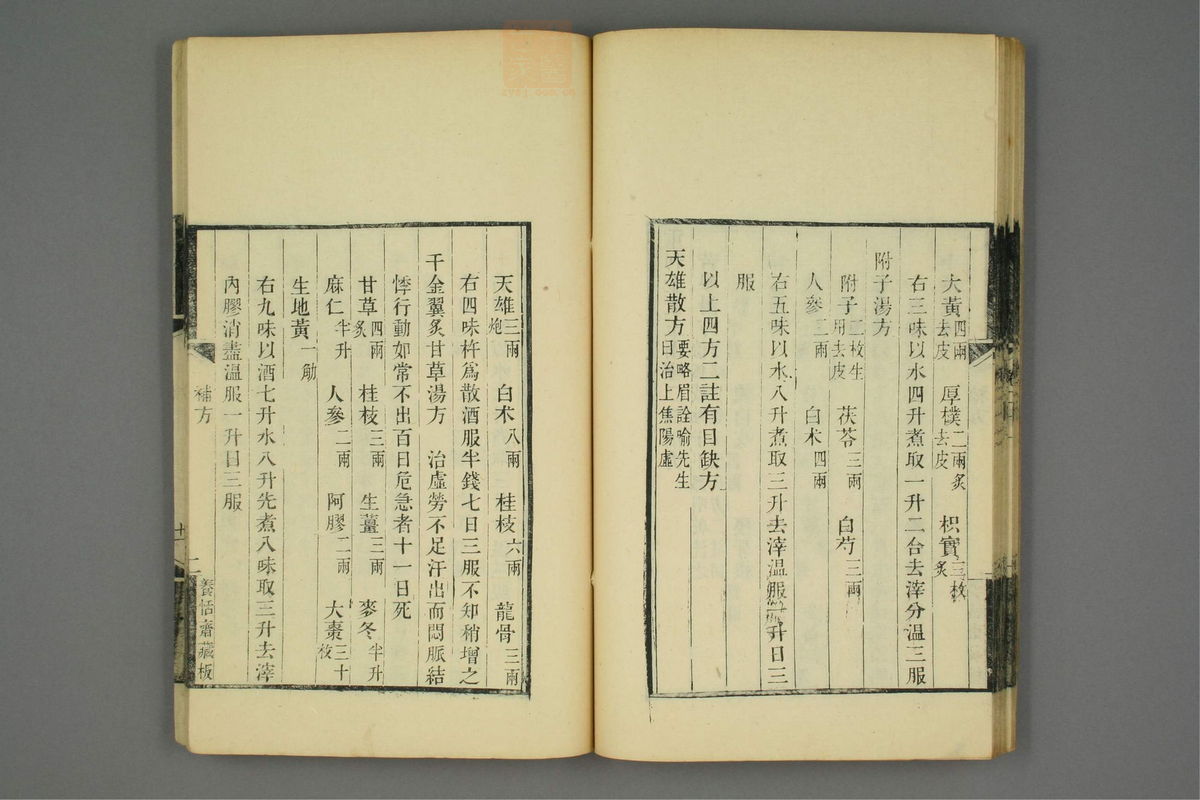 大黃四兩去皮　厚樸二兩炙去皮　枳實三枚炙
右三味以水四升煮取一升二合去滓分温三服
附子湯方
附子二枚生用去皮　茯苓三兩　白芍三兩
人參二兩　白术四兩
右五味以水八升煮取三升去滓温服一升日三
服
以上四方二註有目缺方
天雄散方要略眉詮喻先生曰治上焦陽虛
天雄三兩炮　白术八兩　桂枝六兩　龍骨三兩
右四味杵爲散酒服半錢七日三服不知稍增之
千金翼炙甘草湯方　治虛勞不足汗出而悶脈結
悸行動如常不出百日危急者十一日死
甘草四兩炙　桂枝三兩　生薑三兩　麥冬半升
麻仁半升　人參二兩　阿膠二兩　大棗三十枚
生地黃一觔
右九味以酒七升水八升先煮八味取三升去滓
內膠消盡温服一升日三服
補方
二
養恬齋藏板